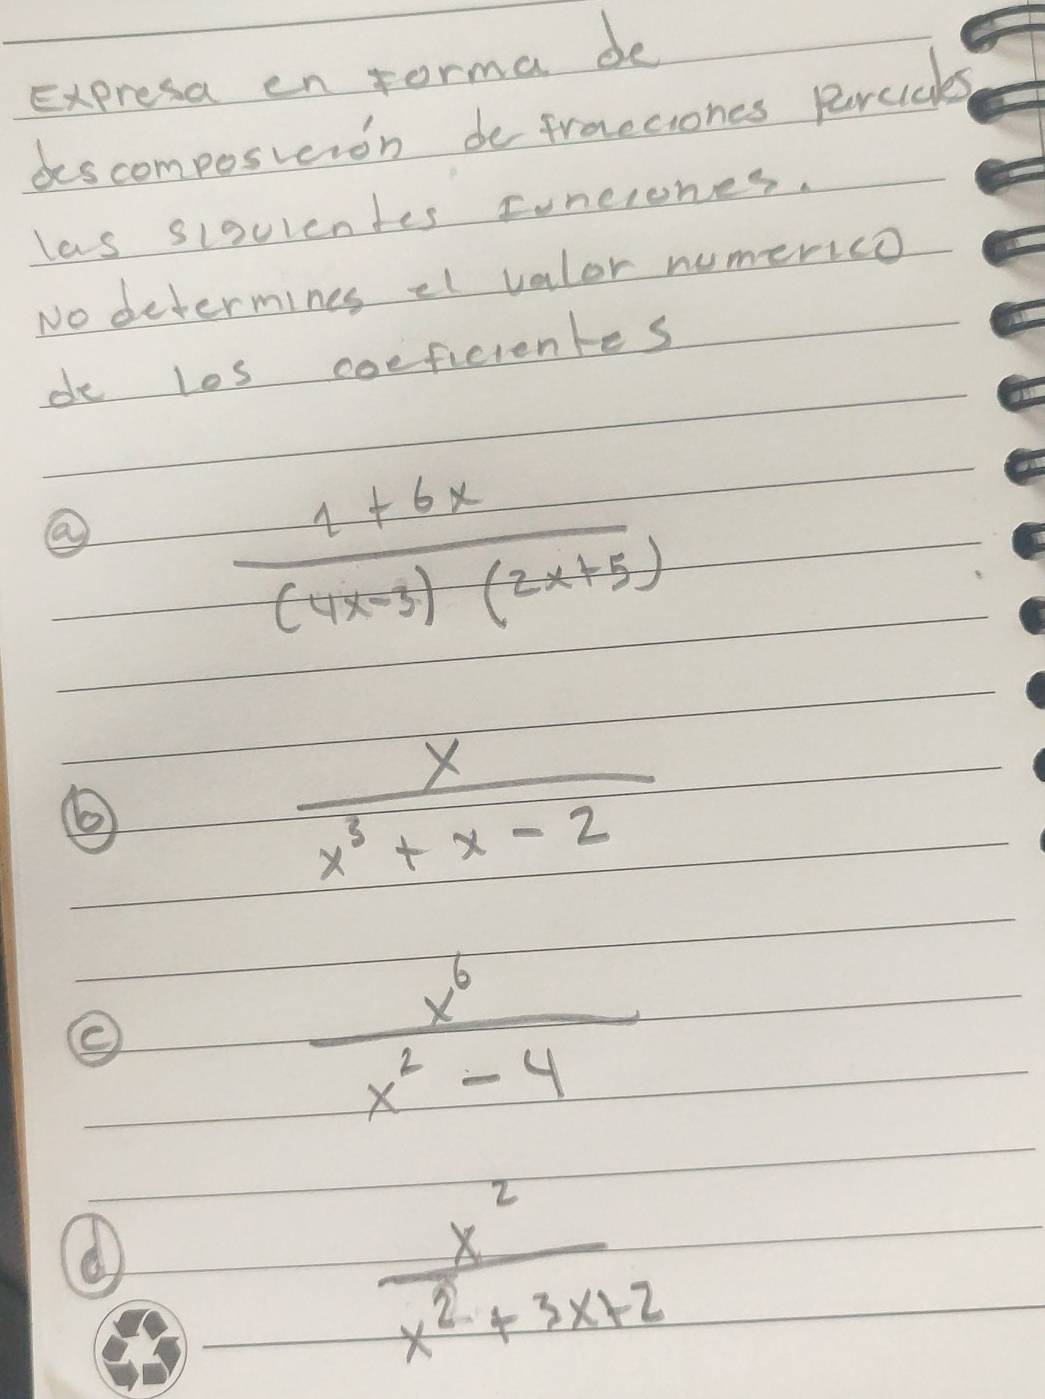 Expresa en forma de
descomposición de fracciones parciales
las siguientes funciones.
No determines el valor numerico
de los coeficientes
(a) 1 + 6x
(4x-3) (2x+5)
(b) x
x³ + x - 2
(c) x⁶
x² - 4
(d) x²
x² + 3x+2